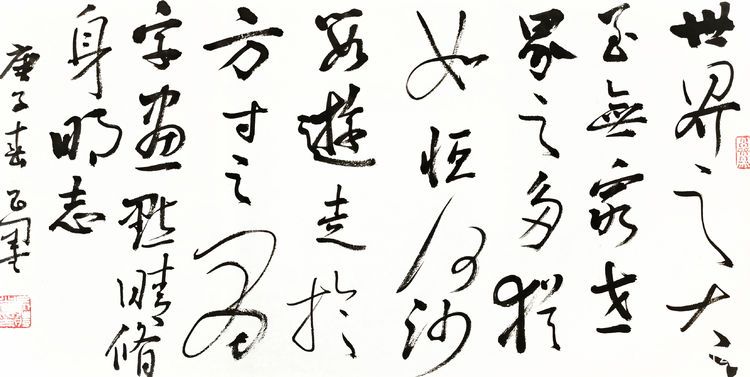 世界之大々
至無窮世
界之多猶
如恒河沙
數遊走於
方寸之間
字畫點睛修
身明志
庚子春